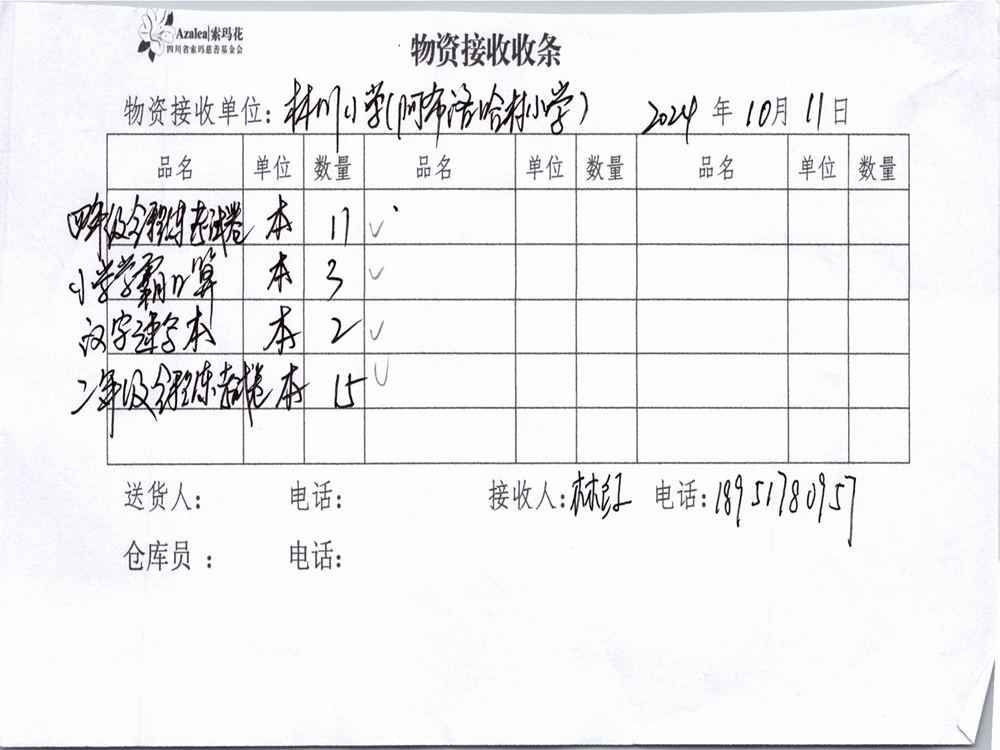 Azalea|索玛花
四川省索玛慈善基金会
物资接收收条
物资接收单位：林川小学(阿布洛哈村小学) 2024 年 10月 11日
品名 单位 数量 品名 单位 数量 品名 单位 数量
四年级全程练考试卷 本 17
小学学霸口算 本 3
汉字速字本 本 2
二年级全程练考试卷 本 15
送货人： 电话： 接收人：林红 电话：18951780957
仓库员 ： 电话：